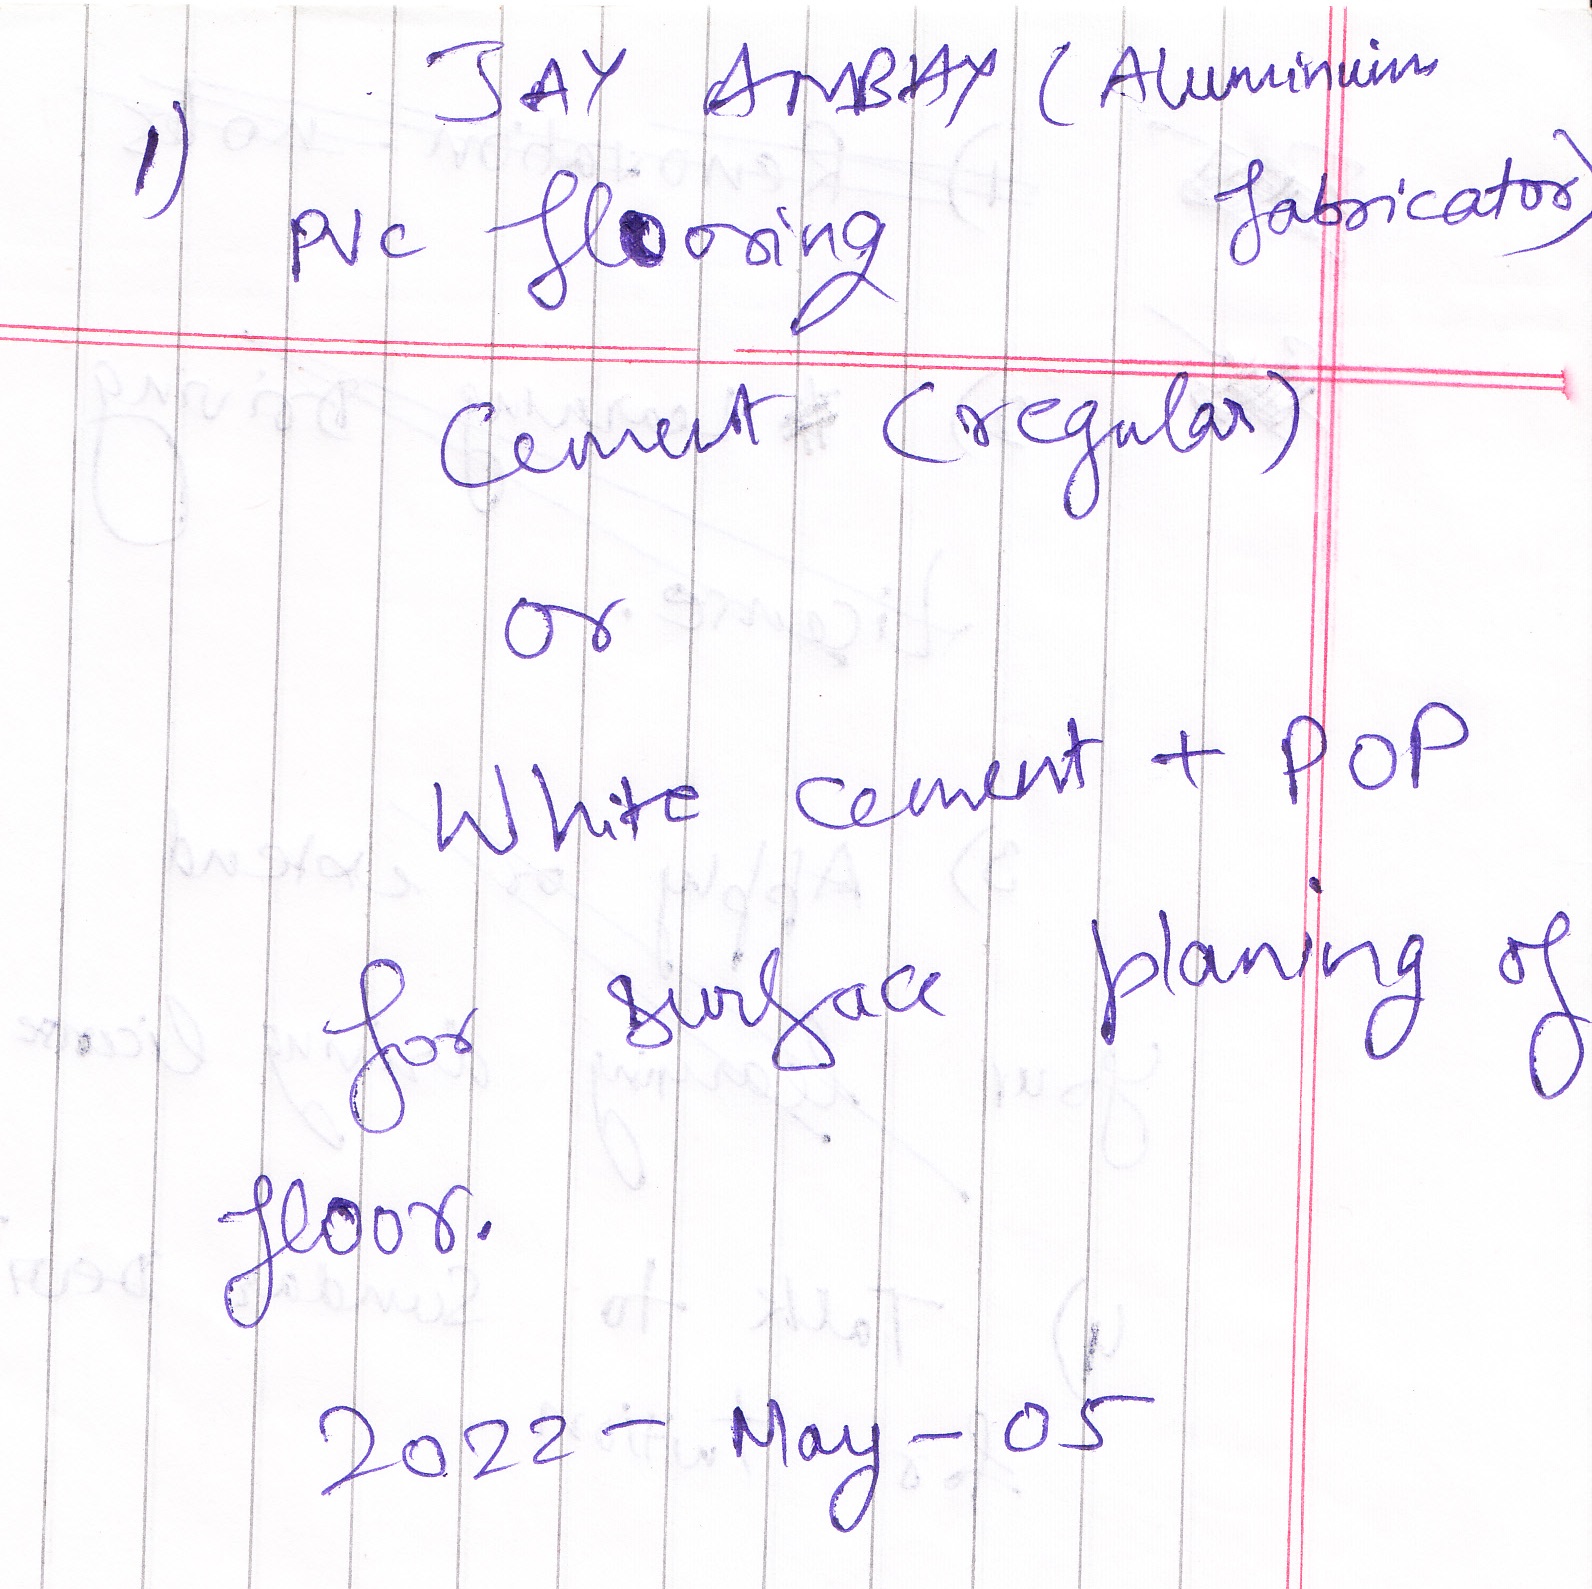 JAY AMBAY (Aluminium
fabricator)
1) PVC flooring
Cement (regular)
or
White cement + POP
for surface planing of
floor.
2022 - May - 05